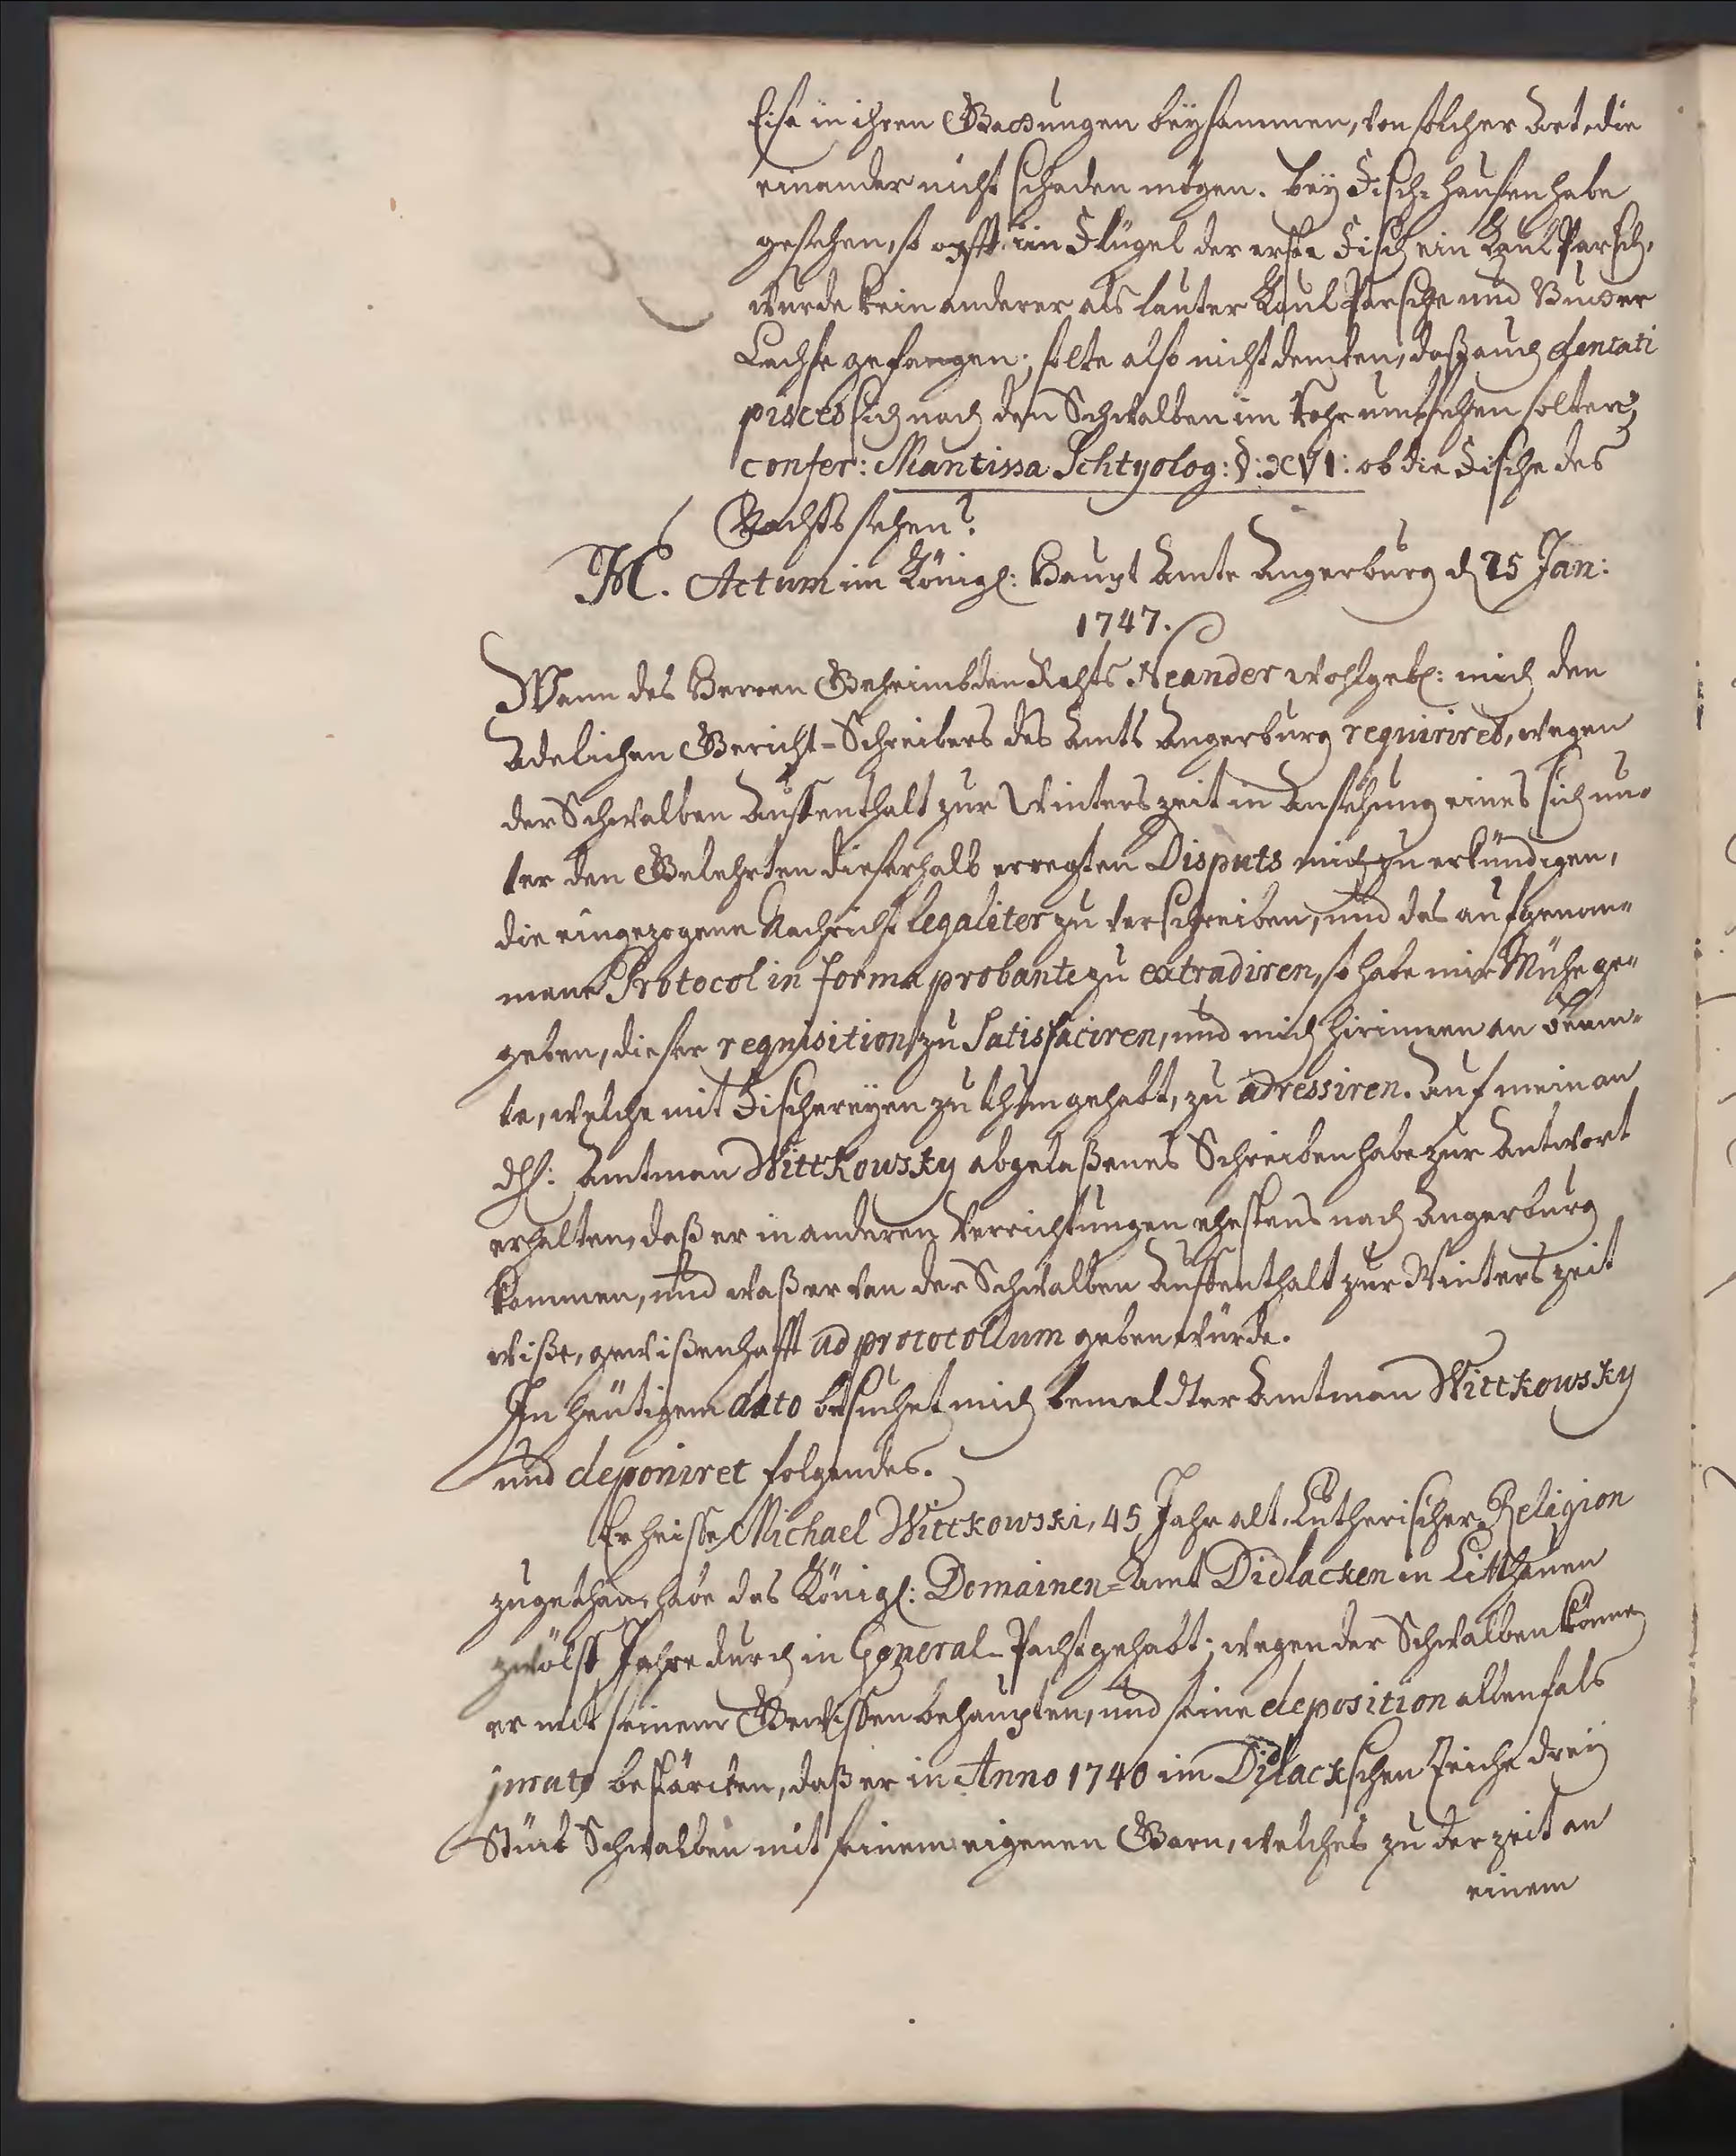 Eise in ihren Gattungen beysammen, von solcher Art, die
einander nicht schaden mögen. Bey Fisch-hausen habe
gesehen, so offt im Flügel der erste Fisch ein Kaul Parsch,
wurde kein anderer als lauter Kaul Parsche und
Lachse gefangen; solte also nicht dencken, daß auch dentati
pisces sich nach den Schwalben im Rohr umbsehen solten,
confer: Mantissa Ichtyolog: §: XVI: ob die Fische des
Nachts sehen?
M. Actum im Königl: Haupt Amte Angerburg d 25 Jan:
1747.
Wenn des Herren Geheimbden Rahts Neander wohlgeb: mich den
Adelichen Gericht-Schreibers des Amts Angerburg requiriret, wegen
der Schwalben Auffenthalt zur Winters zeit in Ansehung eines sich un-
ter den Gelehrten dieserhalb erregten Disputs mich zu erkündigen,
die eingezogene Nachricht legaliter zu verschreiben, und das aufgenom-
mene Protocol in forma probante zu extradiren, so habe mir Mühe ge-
geben, dieser requisition zu Satisfaciren, und mich hirinnen an Beam-
te, welche mit Fischereyen zu thun gehabt, zu adressiren. Auf mein an
dH: Amtman Wittkowsky abgelaßenes Schreiben habe zur Antwort
erhalten, daß er in anderen Verrichtungen ehestens nach Angerburg
kommen, und waß er von der Schwalben Auffenthalt zur Winters zeit
wiße, gewißenhafft ad protocollum geben würde.
In heutigem dato besuchet mich bemeldter Amtman Wittkowsky
und deponiret folgendes.
Er heisse Michael Wittkowski, 45 Jahr alt, Lutherischer Religion
zugethan, habe das Königl: Domainen-Amt Didlacken in Litthauen
zwölff Jahre durch in General-Pacht gehabt; wegen der Schwalben könne
er mit seinem Gewissen behaupten, und seine deposition allenfals
jurato bestärcken, daß er in Anno 1740 im Didlackschen Teiche dreij
Stück Schwalben mit seinem eigenen Garn, welches zu der zeit an
einem